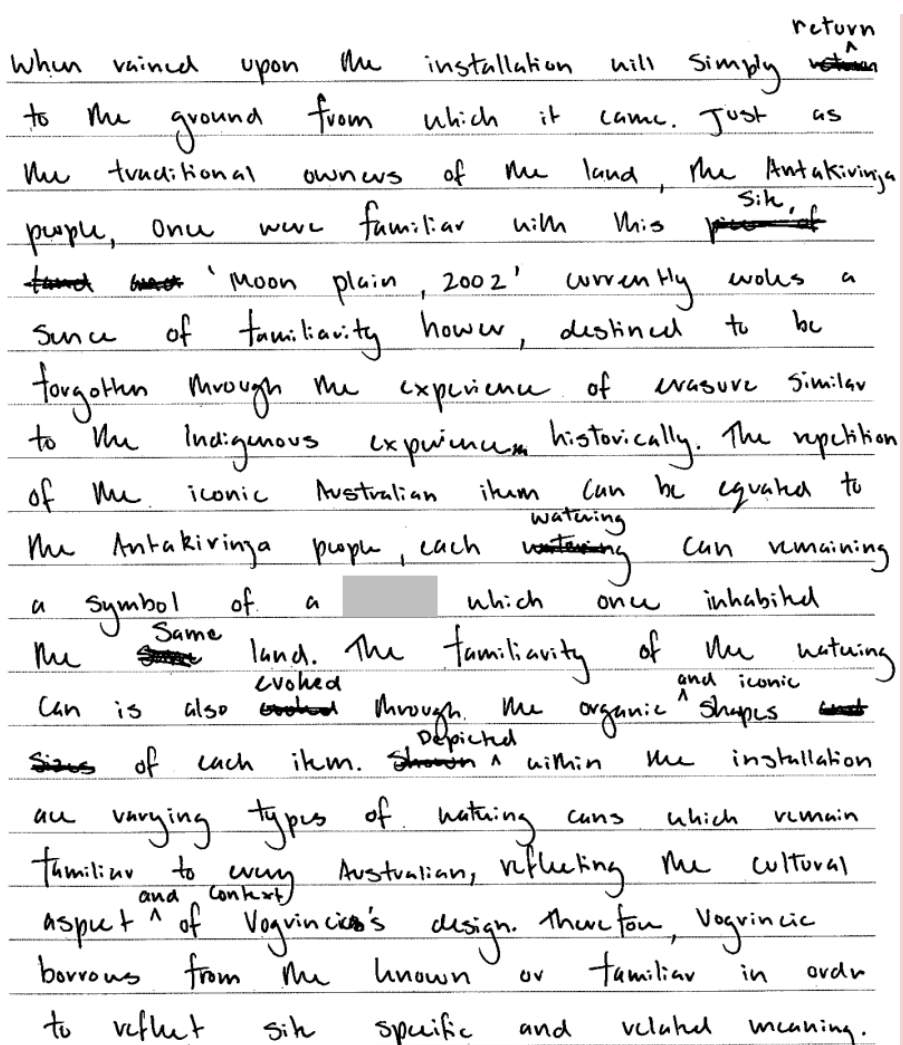 When rained upon the installation will simply return
to the ground from which it came. Just as
the traditional owners of the land, the Antakirinja
people, once were familiar with this site,
'Moon plain, 2002' currently evokes a
sence of familiarity hower, destined to be
forgotten through the experience of erasure similar
to the Indigenous experience historically. The repetition
of the iconic Australian item can be equated to
the Antakirinja people, each watering can remaining
a symbol of a which once inhabited
the same land. The familiarity of the watering
can is also evoked through the organic and iconic shapes
of each item. Depicted within the installation
are varying types of watering cans which remain
familiar to every Australian, reflecting the cultural
aspect and context of Vogrincic's design. Therefore, Vogrincic
borrows from the known or familiar in order
to reflect site specific and related meaning.